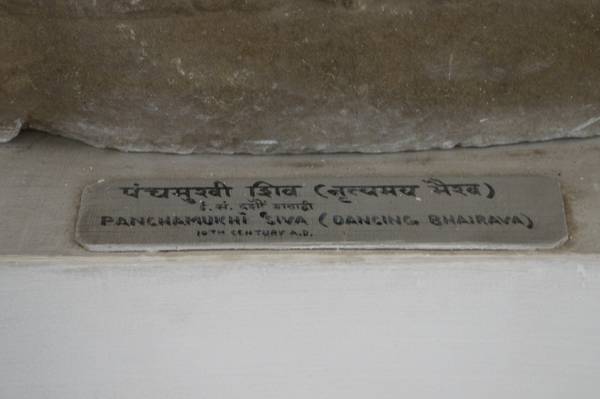 पंचमुखी शिव (नृत्यमय भैरव)
ई. सं. दशवीं शताब्दी
PANCHAMUKHI SIVA (DANCING BHAIRAVA)
10TH CENTURY A.D.